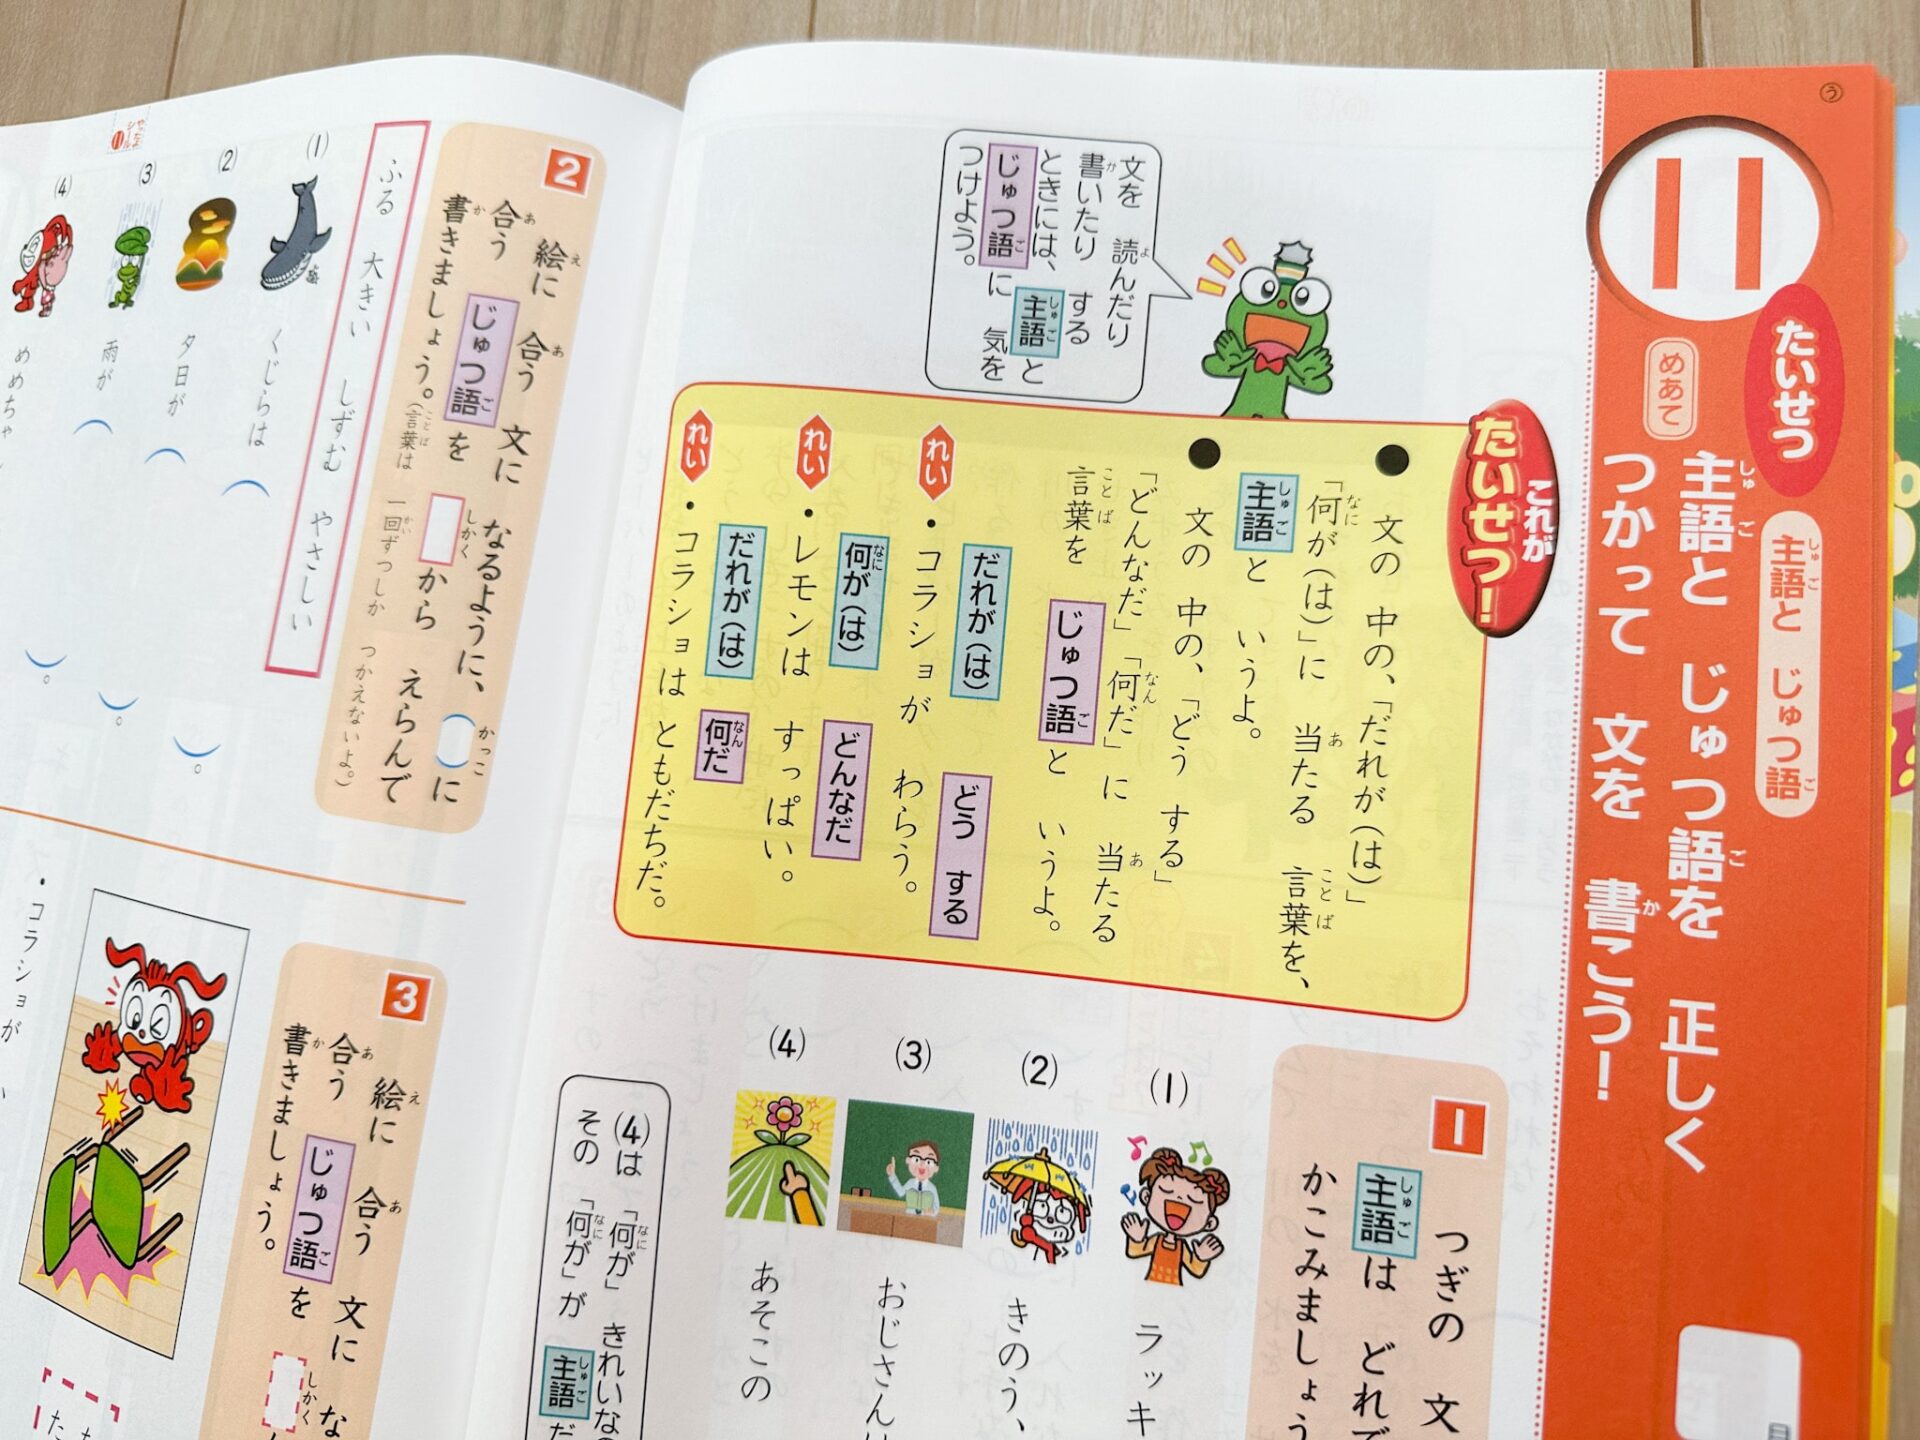 11
たいせつ
主語と じゅつ語
めあて
主語と じゅつ語を 正しく
つかって 文を 書こう!
文を 読んだり
書いたり する
ときには、主語と
じゅつ語に 気を
つけよう。
これが
たいせつ!
● 文の 中の、「だれが(は)」
「何が(は)」に 当たる 言葉を、
主語と いうよ。
● 文の 中の、「どう する」
「どんなだ」「何だ」に 当たる
言葉を じゅつ語と いうよ。
れい
だれが(は) どう する
・コラショが わらう。
れい
何が(は) どんなだ
・レモンは すっぱい。
れい
だれが(は) 何だ
・コラショは ともだちだ。
1
つぎの 文
主語は どれで
かこみましょう
(1) ラッキ
(2) きのう、
(3) おじさんは
(4) あそこの
(4)は 「何が」 きれいな
その 「何が」が 主語だ
2
絵に 合う 文に なるように、( )に
合う じゅつ語を □から えらんで
書きましょう。(言葉は 一回ずつしか つかえないよ。)
ふる 大きい しずむ やさしい
(1) くじらは ( )。
(2) 夕日が ( )。
(3) 雨が ( )。
(4) めめちゃ
3
絵に 合う 文に な
合う じゅつ語を
書きましょう。
・コラショが